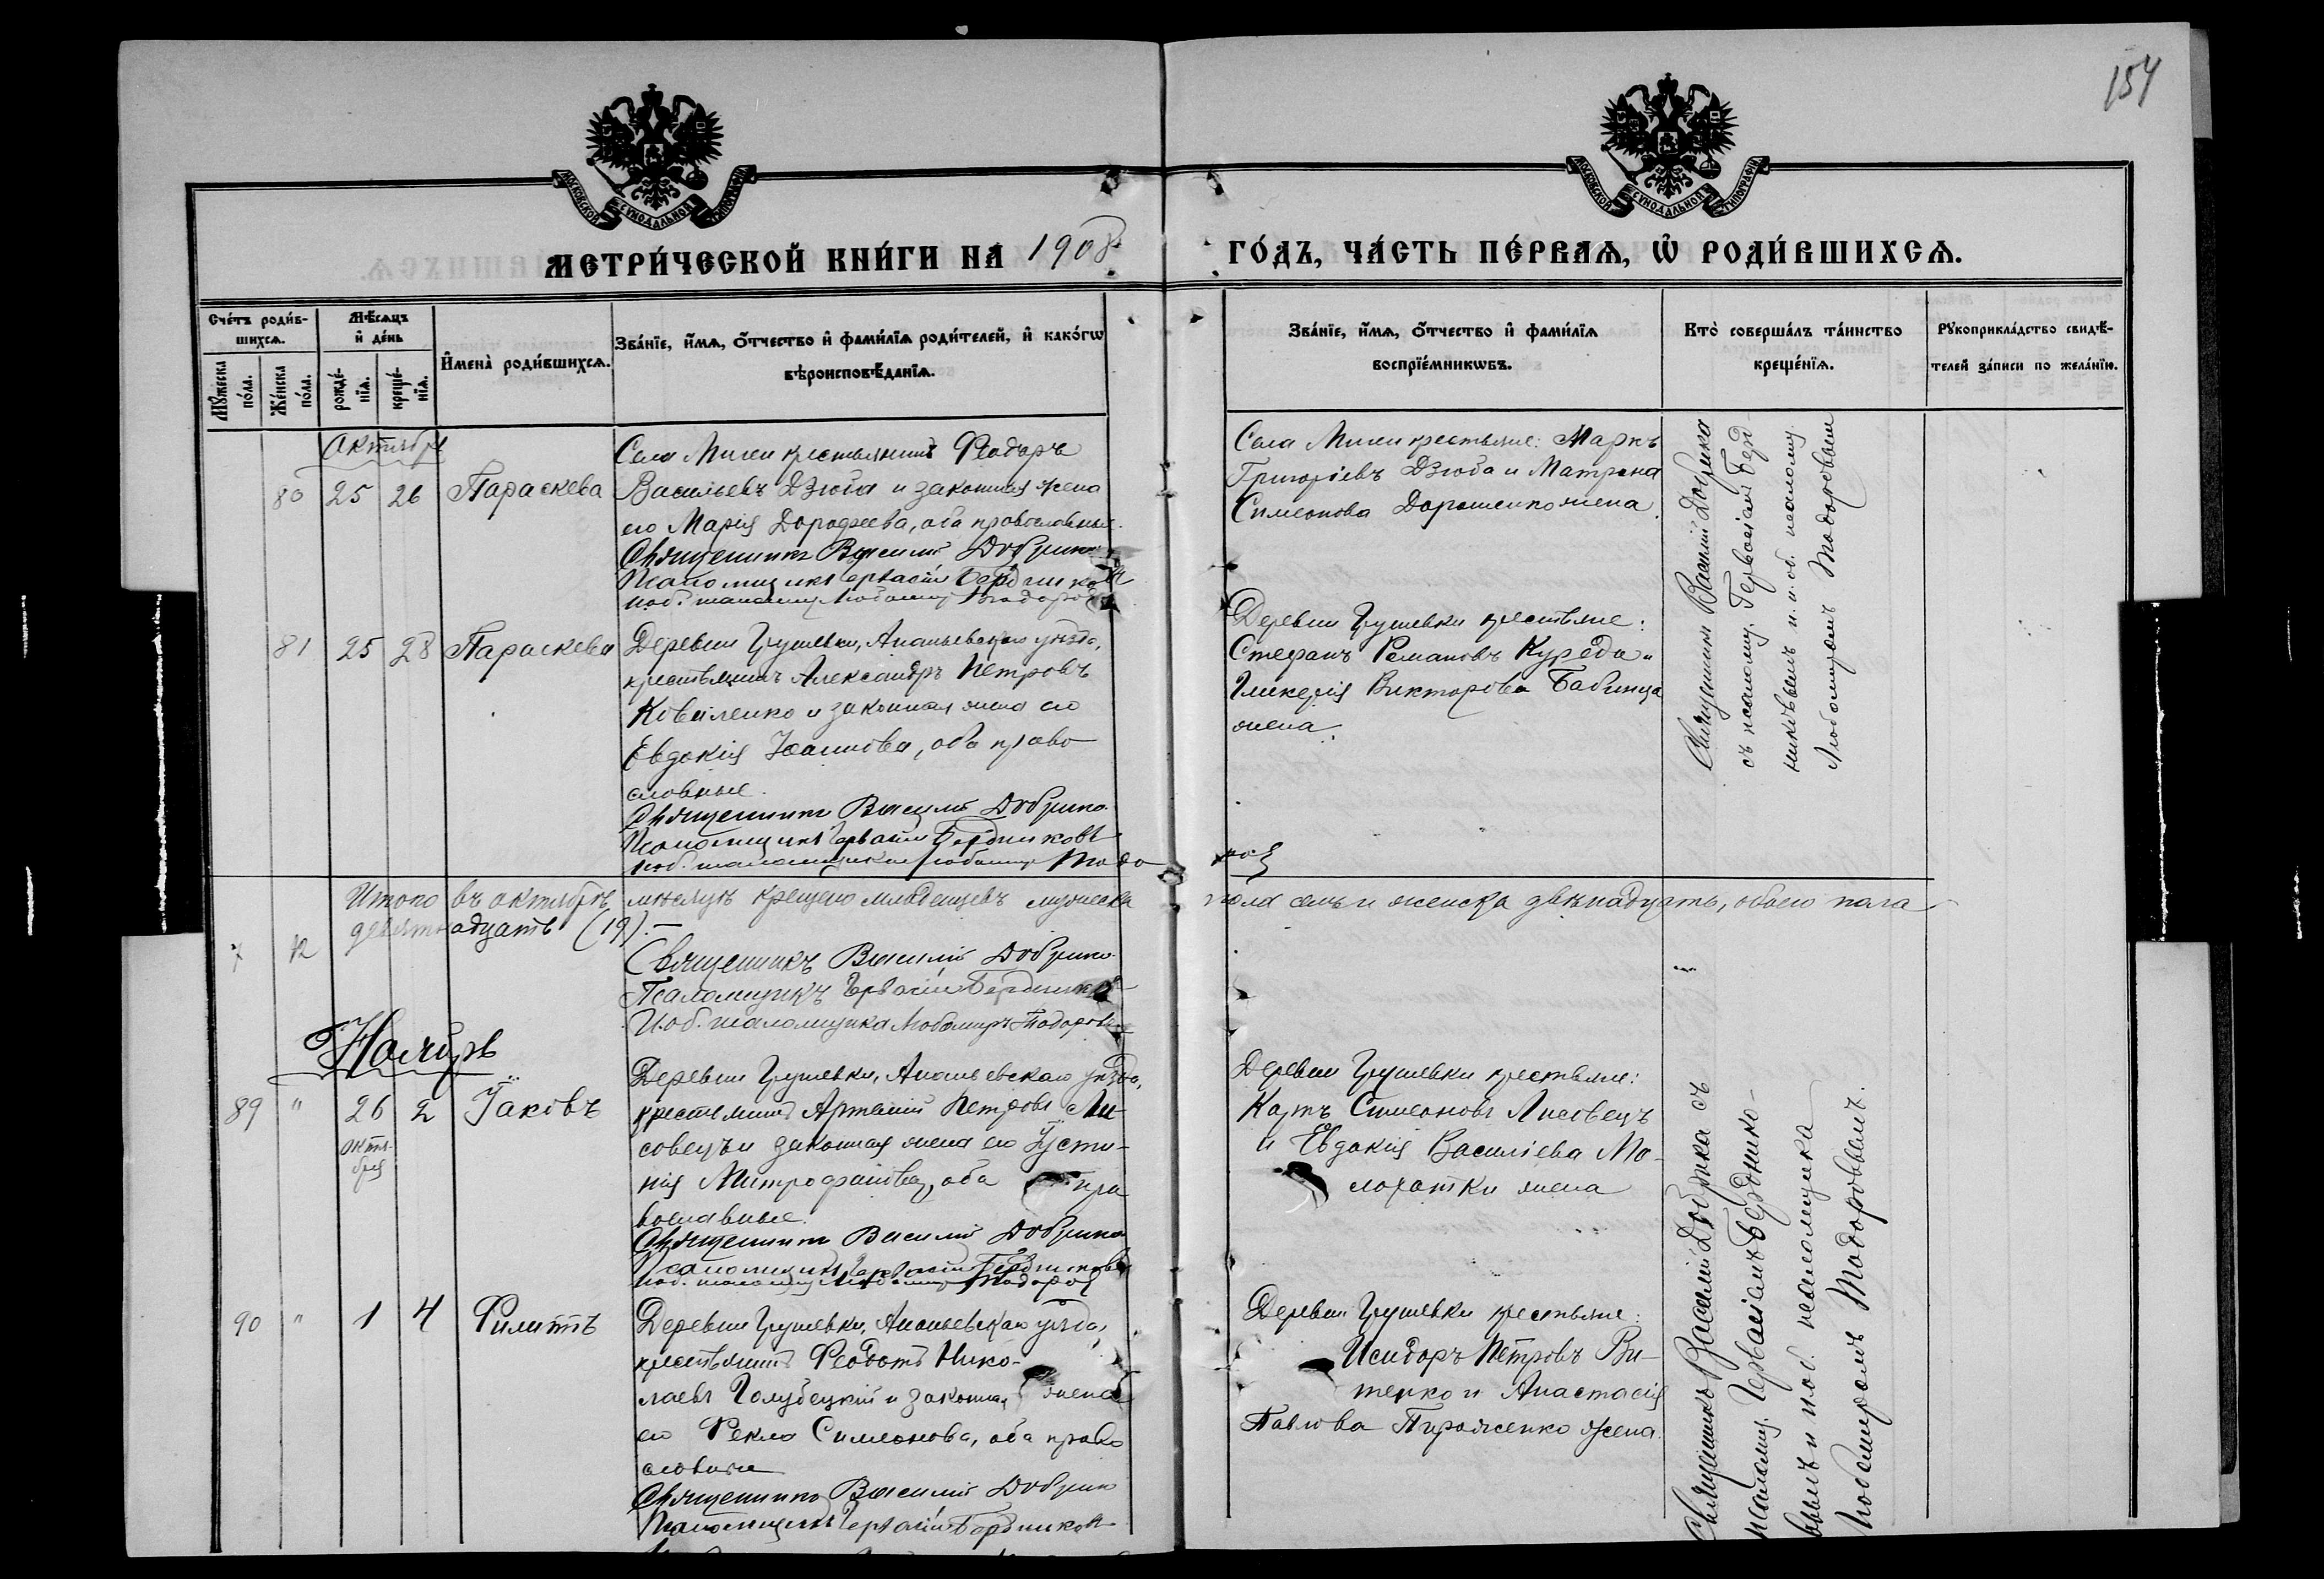 154
МОСКОВСКОЙ СѴНОДАЛЬНОЙ ТИПОГРАФІИ
МОСКОВСКОЙ СѴНОДАЛЬНОЙ ТИПОГРАФІИ
МЕТРИ́ЧЕСКОЙ КНИ́ГИ НА 1908 ГО́ДЪ, ЧА́СТЬ ПЕ́РВАѦ, Ѡ҆ РОДИ́ВШИХСѦ.
Сче́тъ роди́в-
шихсѧ.
Мꙋ́жеска по́ла.
Же́нска по́ла.
Мѣ́сѧцъ
и҆ де́нь
рожде́-
нїѧ.
креще́-
нїѧ.
И҆мена̀ роди́вшихсѧ.
Зва́нїе, и҆́мѧ, ѻ҆́тчество и҆ фами́лїѧ роди́телей, и҆ како́гѡ
вѣроисповѣ́данїѧ.
Зва́нїе, и҆́мѧ, ѻ҆́тчество и҆ фами́лїѧ
воспрїе́мникѡвъ.
Кто̀ соверша́лъ та́инство
креще́нїѧ.
Рꙋкоприкла́дство свидѣ́-
телей за́писи по жела́нїю.
Октября
80 25 26 Параскева
Села Мигеи крестьянинъ Феодоръ
Васильевъ Дзюба и законная жена
его Марія Дорофеева, оба православные.
Священникъ Василій Добрико
Псаломщикъ Гервасій Бердниковъ
Села Мигеи крестьяне: Маркъ
Григоріевъ Дзюба и Матрона
Симеонова Дорошенко жена.
Священникъ Василій Добрика
съ псаломщ. Гервасіемъ Берд-
никовымъ и и. об. псаломщ.
Любомиромъ Тодоровымъ
81 25 28 Параскева
Деревни Грушевки, Ананьевскаго уѣзда,
крестьянинъ Александръ Петровъ
Коваленко и законная жена его
Евдокія Іоаннова, оба право
славные.
Священникъ Василій Добрико.
Псаломщикъ Гервасій Бердниковъ
И об. псаломщика Любомиръ Тодоров
Деревни Грушевки крестьяне:
Стефанъ Романовъ Куреда и
Гликерія Викторова Бабинца
жена.
Итого въ октябрѣ мѣсяцѣ крещено младенцевъ мужеска пола семь и женска двѣнадцать, обоего пола
девятнадцать (19).—
7 12
Священникъ Василій Добрико.
Псаломщикъ Гервасій Бердниковъ
И. об. псаломщика Любомиръ Тодоровъ
Ноябрь
89 " 26 2 Іаковъ
октя-
бря
Деревни Грушевки, Ананьевскаго уѣзда,
крестьянинъ Артемій Петровъ Ли-
совецъ и законная жена его Іусти-
нія Митрофанова, оба пра
вославные.
Священникъ Василій Добрико
Псаломщикъ Гервасій Бердниковъ
Деревни Грушевки крестьяне:
Карпъ Симеоновъ Лисовецъ
и Евдокія Василіева Мо-
лоратки жена
Священникъ Василій Добрика съ
псаломщ. Гервасіемъ Берднико-
вымъ и и об. псаломщика
Любомиромъ Тодоровымъ.
90 " 1 4 Филиппъ
Деревни Грушевки, Ананьевскаго уѣзда,
крестьянинъ Феодотъ Нико-
лаевъ Голубецкій и законная жена
его Фекла Симеонова, оба право
славные
Священникъ Василій Добрико
Псаломщикъ Гервасій Бердниковъ
Деревни Грушевки крестьяне:
Исидоръ Петровъ Ви-
тенко и Анастасія
Павлова Пироженко жена.